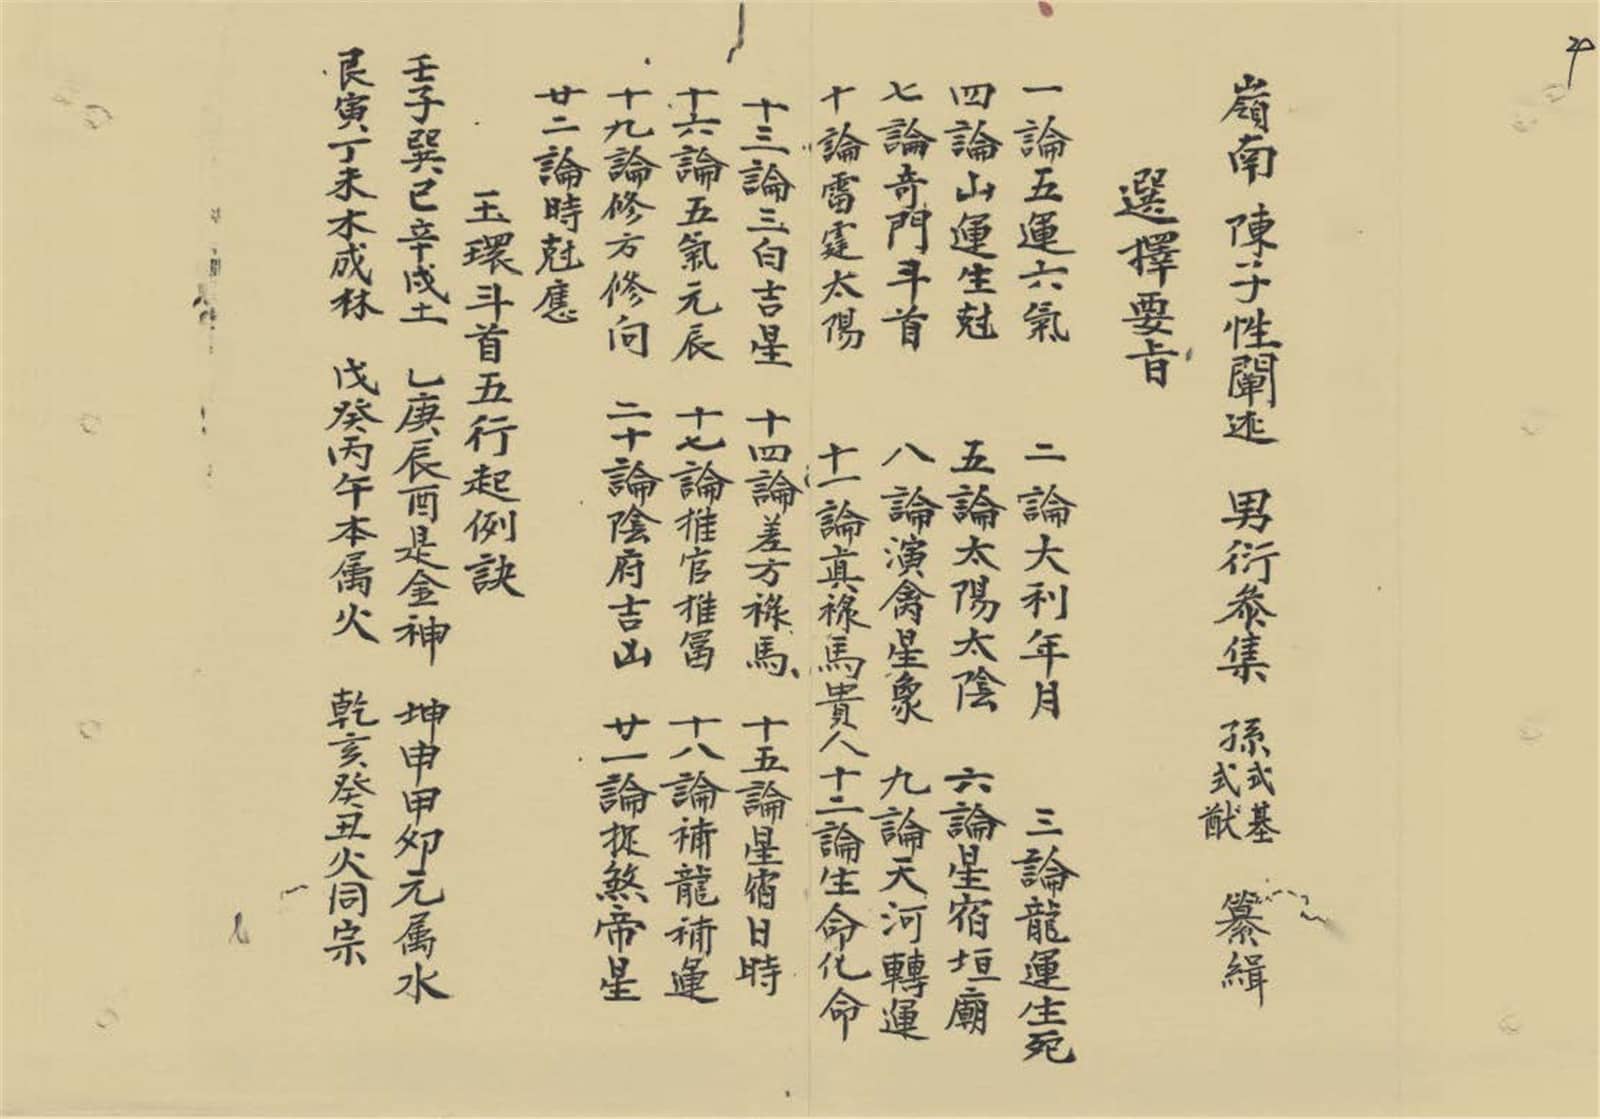 嶺南 陳子性闡述 男衍參集 孫式基式猷 纂緝
選擇要旨
一論五運六氣 二論大利年月 三論龍運生死
四論山運生尅 五論太陽太陰 六論星宿垣廟
七論奇門斗首 八論演禽星象 九論天河轉運
十論雷霆太陽 十一論真祿馬貴人 十二論生命化命
十三論三白吉星 十四論差方祿馬 十五論星宿日時
十六論五氣元辰 十七論推官推冨 十八論補龍補運
十九論修方修向 二十論陰府吉山 廿一論捉煞帝星
廿二論時尅應
玉環斗首五行起例訣
壬子巽巳辛戌土 乙庚辰酉是金神 坤申甲夘元属水
艮寅丁未木成林 戊癸丙午本属火 乾亥癸丑火同宗